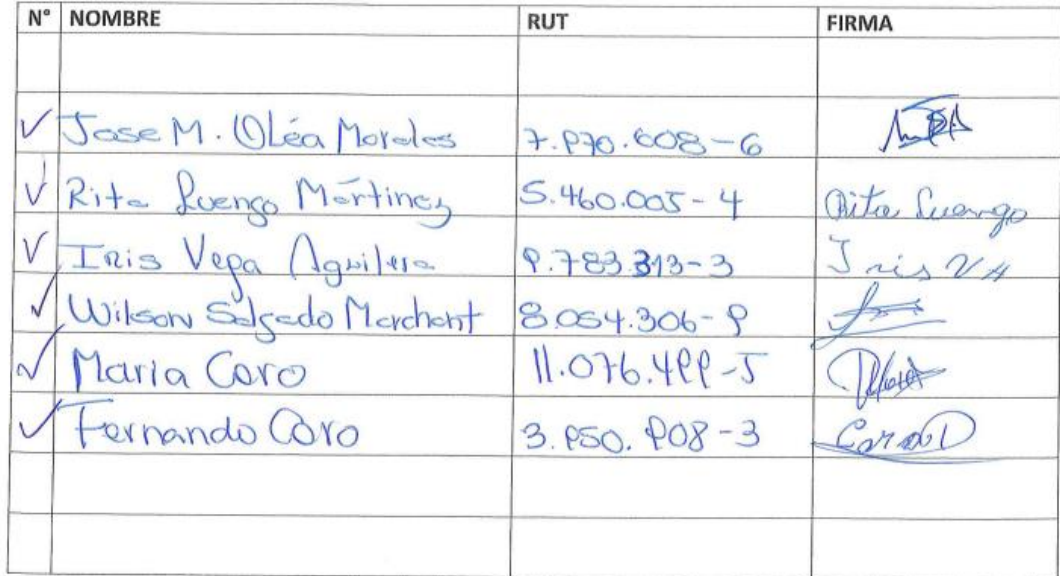 N° NOMBRE RUT FIRMA
✓ Jose M. Oléa Morales 7.970.608-6
✓ Rita Luengo Mártinez 5.460.005-4 Rita Luengo
✓ Iris Vega Aguilera 9.783.313-3 Iris V A
✓ Wilson Salgado Marchant 8.054.306-9
✓ Maria Coro 11.076.499-5
✓ Fernando Coro 3.950.908-3 Coro D